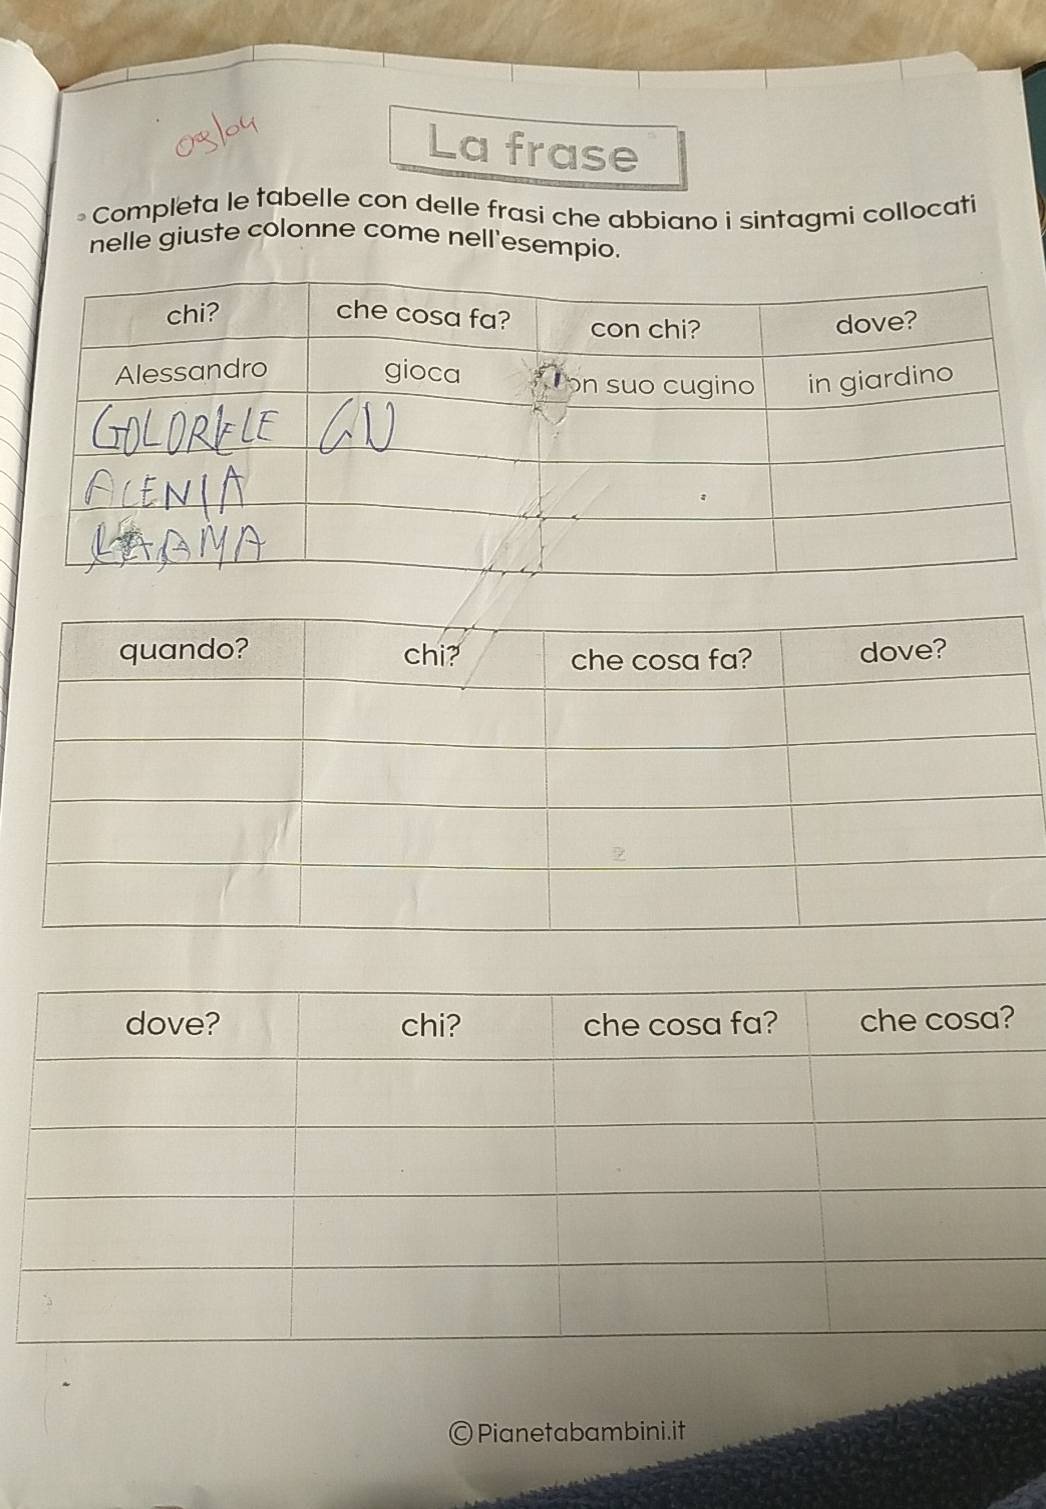 09/04
La frase
Completa le tabelle con delle frasi che abbiano i sintagmi collocati
nelle giuste colonne come nell'esempio.
chi? che cosa fa? con chi? dove?
Alessandro gioca on suo cugino in giardino
quando? chi? che cosa fa? dove?
dove? chi? che cosa fa? che cosa?
©Pianetabambini.it